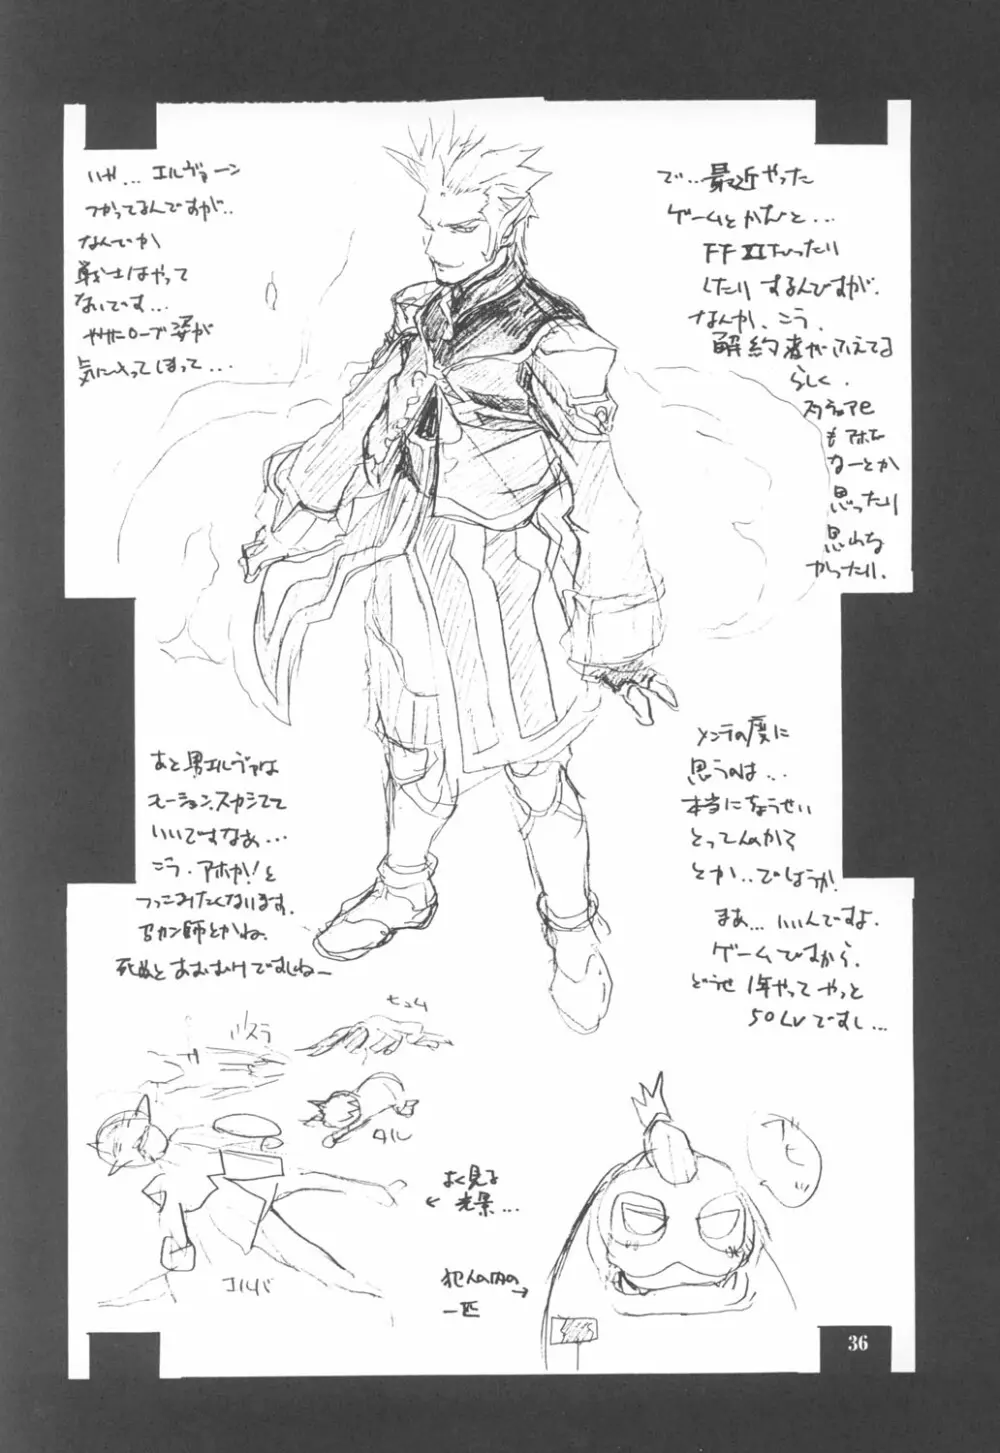 で…最近やった
ゲームとかだと…
FFXIだったり
したりするんですが.
なんか、こう、
解約者がふえてる
らしく.
スクウェアe
もアホだ
なーとか
思ったり
思わな
かったり.
いや… エルヴァーン
つかってるんですが..
なんでか
戦士はやって
ないです…
ローブ姿が
気に入ってしまって…
メンテの度に
思うのは…
本当にちょうせい
とってんのかて
とか..ではうか.
まぁ…いいんですよ.
ゲームですから.
どうせ1年やってやっと
50Lvですし…
あと男エルヴァは
モーション、スカシてて
いいですなぁ…
こう、アホか!と
つっこみたくなります.
死ぬとあおむけですしね-
ヒュム
タル
エルバ
よく見る
← 光景…
犯人の内の →
一匹
36